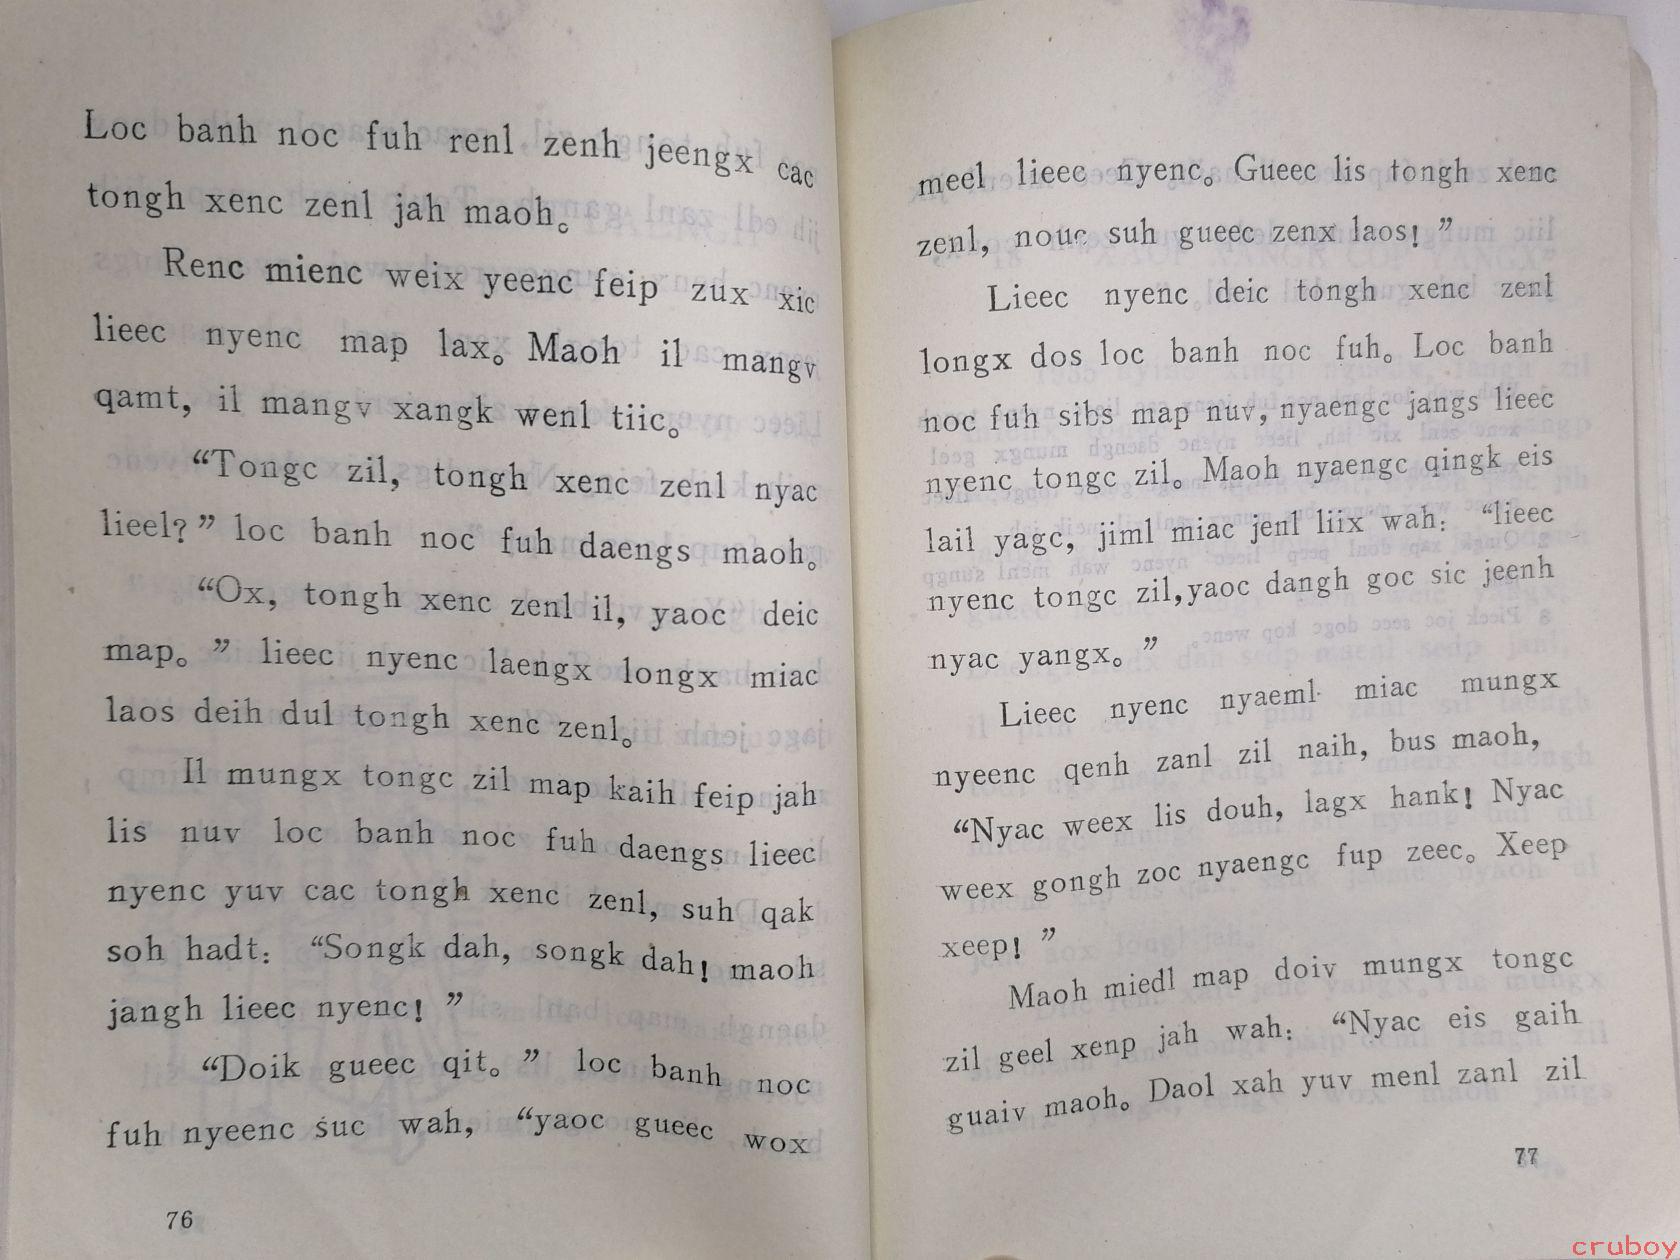 Loc banh noc fuh renl zenh jeengx cac
tongh xenc zenl jah maoh。
Renc mienc weix yeenc feip zux xic
lieec nyenc map lax。 Maoh il mangv
qamt, il mangv xangk wenl tiic。
“Tongc zil, tongh xenc zenl nyac
lieel? ” loc banh noc fuh daengs maoh。
“Ox, tongh xenc zenl il, yaoc deic
map。 ” lieec nyenc laengx longx miac
laos deih dul tongh xenc zenl。
Il mungx tongc zil map kaih feip jah
lis nuv loc banh noc fuh daengs lieec
nyenc yuv cac tongh xenc zenl, suh qak
soh hadt: “Songk dah, songk dah! maoh
jangh lieec nyenc! ”
“Doik gueec qit。 ” loc banh noc
fuh nyeenc suc wah, “yaoc gueec wox
76
meel lieec nyenc。 Gueec lis tongh xenc
zenl, nouc suh gueec zenx laos! ”
Lieec nyenc deic tongh xenc zenl
longx dos loc banh noc fuh。 Loc banh
noc fuh sibs map nuv, nyaengc jangs lieec
nyenc tongc zil。 Maoh nyaengc qingk eis
lail yagc, jiml miac jenl liix wah: “lieec
nyenc tongc zil,yaoc dangh goc sic jeenh
nyac yangx。 ”
Lieec nyenc nyaeml miac mungx
nyeenc qenh zanl zil naih, bus maoh,
“Nyac weex lis douh, lagx hank! Nyac
weex gongh zoc nyaengc fup zeec。 Xeep
xeep! ”
Maoh miedl map doiv mungx tongc
zil geel xenp jah wah: “Nyac eis gaih
guaiv maoh。 Daol xah yuv menl zanl zil
77
cruboy